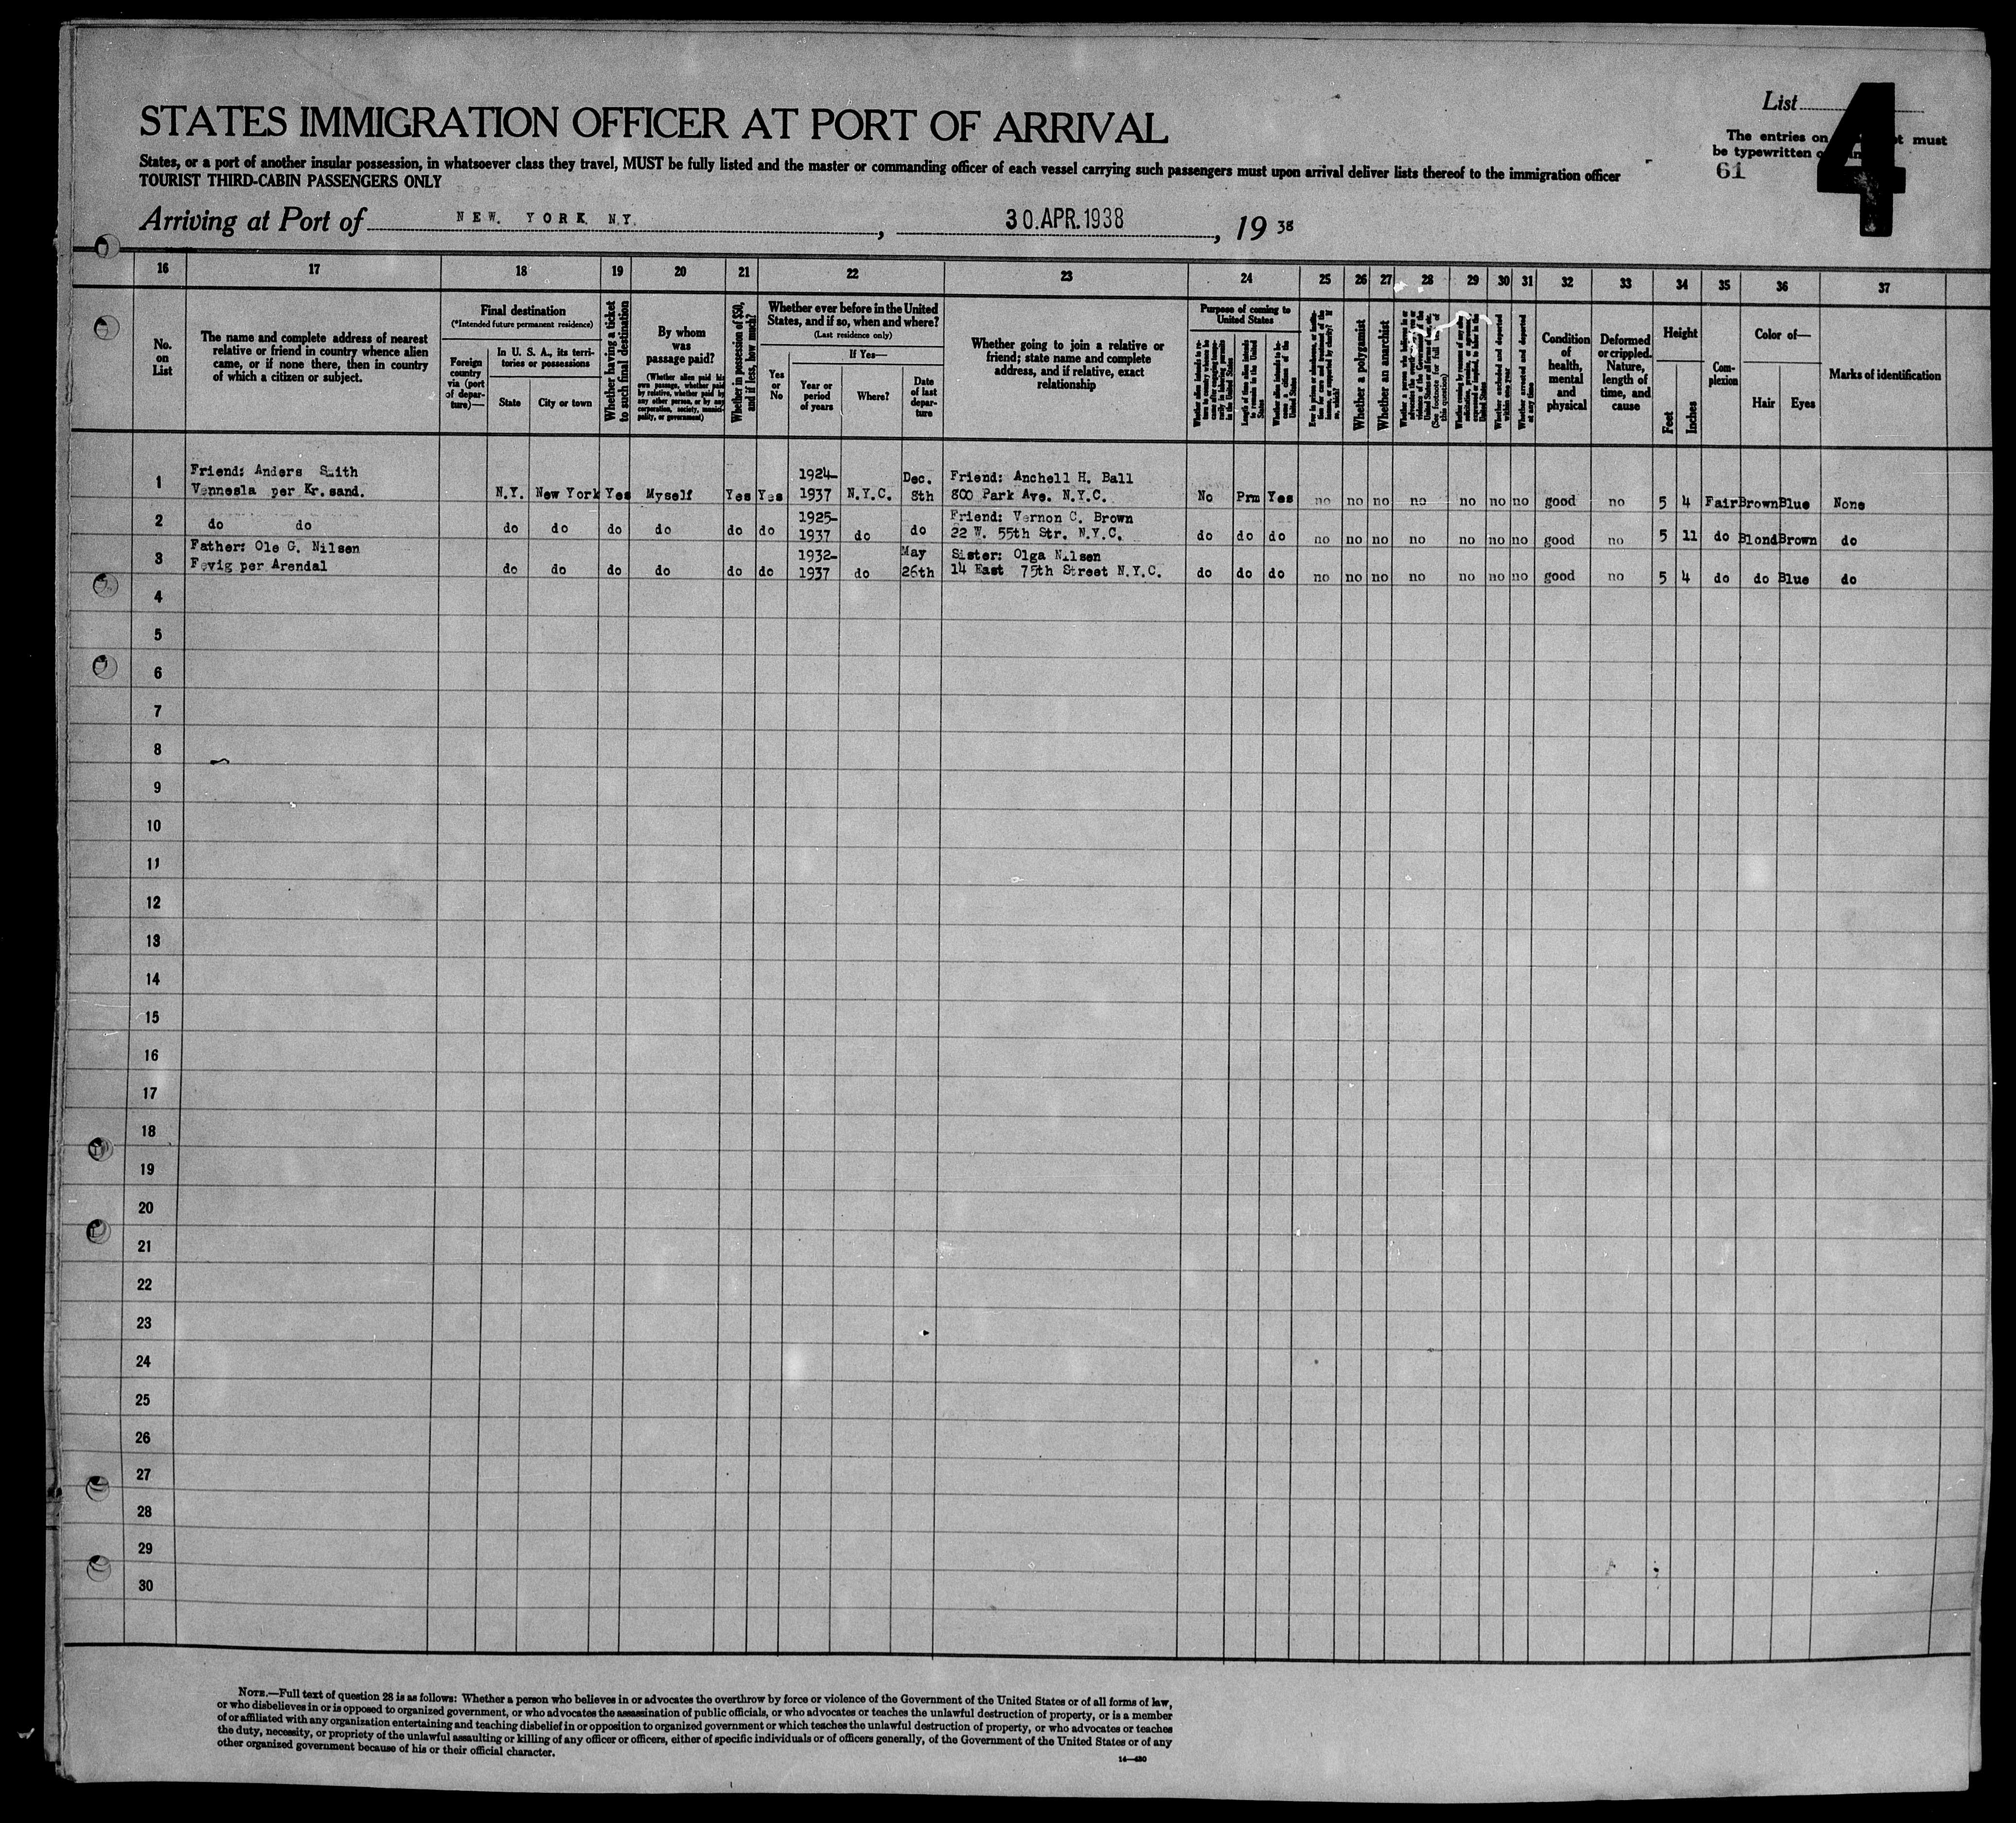 STATES IMMIGRATION OFFICER AT PORT OF ARRIVAL
List 4
The entries on must
be typewritten
61
States, or a port of another insular possession, in whatsoever class they travel, MUST be fully listed and the master or commanding officer of each vessel carrying such passengers must upon arrival deliver lists thereof to the immigration officer
TOURIST THIRD-CABIN PASSENGERS ONLY
Arriving at Port of NEW. YORK N.Y. , 30.APR.1938 , 19 38
16 17 18 19 20 21 22 23 24 25 26 27 28 29 30 31 32 33 34 35 36 37
No. on List
The name and complete address of nearest
relative or friend in country whence alien
came, or if none there, then in country
of which a citizen or subject.
Final destination
(*Intended future permanent residence)
Foreign country via (port of departure)—
In U. S. A., its territories or possessions
State
City or town
Whether having a ticket to such final destination
By whom was passage paid?
(Whether alien paid his own passage, whether paid by relative, whether paid by any other person, or by any corporation, society, municipality, or government)
Whether in possession of $50, and if less, how much?
Whether ever before in the United
States, and if so, when and where?
(Last residence only)
Yes or No
If Yes—
Year or period of years
Where?
Date of last departure
Whether going to join a relative or
friend; state name and complete
address, and if relative, exact
relationship
Purpose of coming to
United States
Length of time alien intends to remain in the United States
Whether alien intends to become a citizen of the United States
Whether a polygamist
Whether an anarchist
(See footnote for full text of this question)
Whether excluded and deported within one year
Whether arrested and deported at any time
Condition of health, mental and physical
Deformed or crippled. Nature, length of time, and cause
Height
Feet
Inches
Complexion
Color of—
Hair
Eyes
Marks of identification
1 Friend: Anders Smith
Vennesla per Kr.sand. N.Y. New York Yes Myself Yes Yes 1924-1937 N.Y.C. Dec. 8th Friend: Anchell H. Ball
800 Park Ave. N.Y.C. No Prm Yes no no no no no no no good no 5 4 Fair Brown Blue None
2 do do do do do do do do 1925-1937 do do Friend: Vernon C. Brown
22 W. 55th Str. N.Y.C. do do do no no no no no no no good no 5 11 do Blond Brown do
3 Father: Ole G. Nilsen
Fevig per Arendal do do do do do do 1932-1937 do May 26th Sister: Olga Nilsen
14 East 75th Street N.Y.C. do do do no no no no no no no good no 5 4 do do Blue do
4
5
6
7
8
9
10
11
12
13
14
15
16
17
18
19
20
21
22
23
24
25
26
27
28
29
30
NOTE.—Full text of question 28 is as follows: Whether a person who believes in or advocates the overthrow by force or violence of the Government of the United States or of all forms of law,
or who disbelieves in or is opposed to organized government, or who advocates the assassination of public officials, or who advocates or teaches the unlawful destruction of property, or is a member
of or affiliated with any organization entertaining and teaching disbelief in or opposition to organized government or which teaches the unlawful destruction of property, or who advocates or teaches
the duty, necessity, or propriety of the unlawful assaulting or killing of any officer or officers, either of specific individuals or of officers generally, of the Government of the United States or of any
other organized government because of his or their official character.
14—430